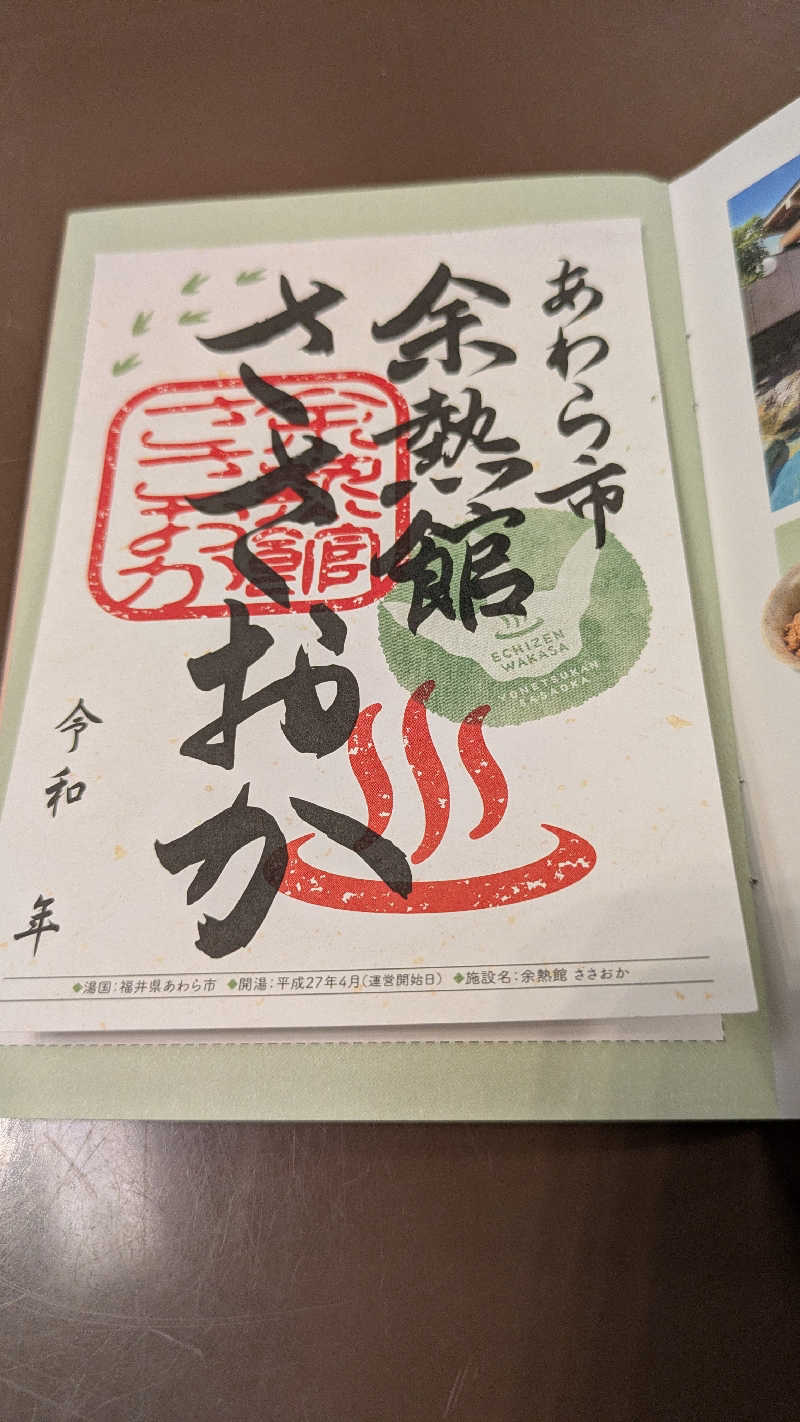 あわら市
余熱館
ささおか
余熱館
ささおか
ECHIZEN
WAKASA
YONETSUKAN
SASAOKA
令和 年
◆湯国:福井県あわら市 ◆開湯:平成27年4月(運営開始日) ◆施設名:余熱館 ささおか